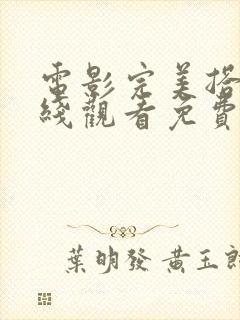 電影完美搭
綫觀看免費
葉明發 黃玉郎